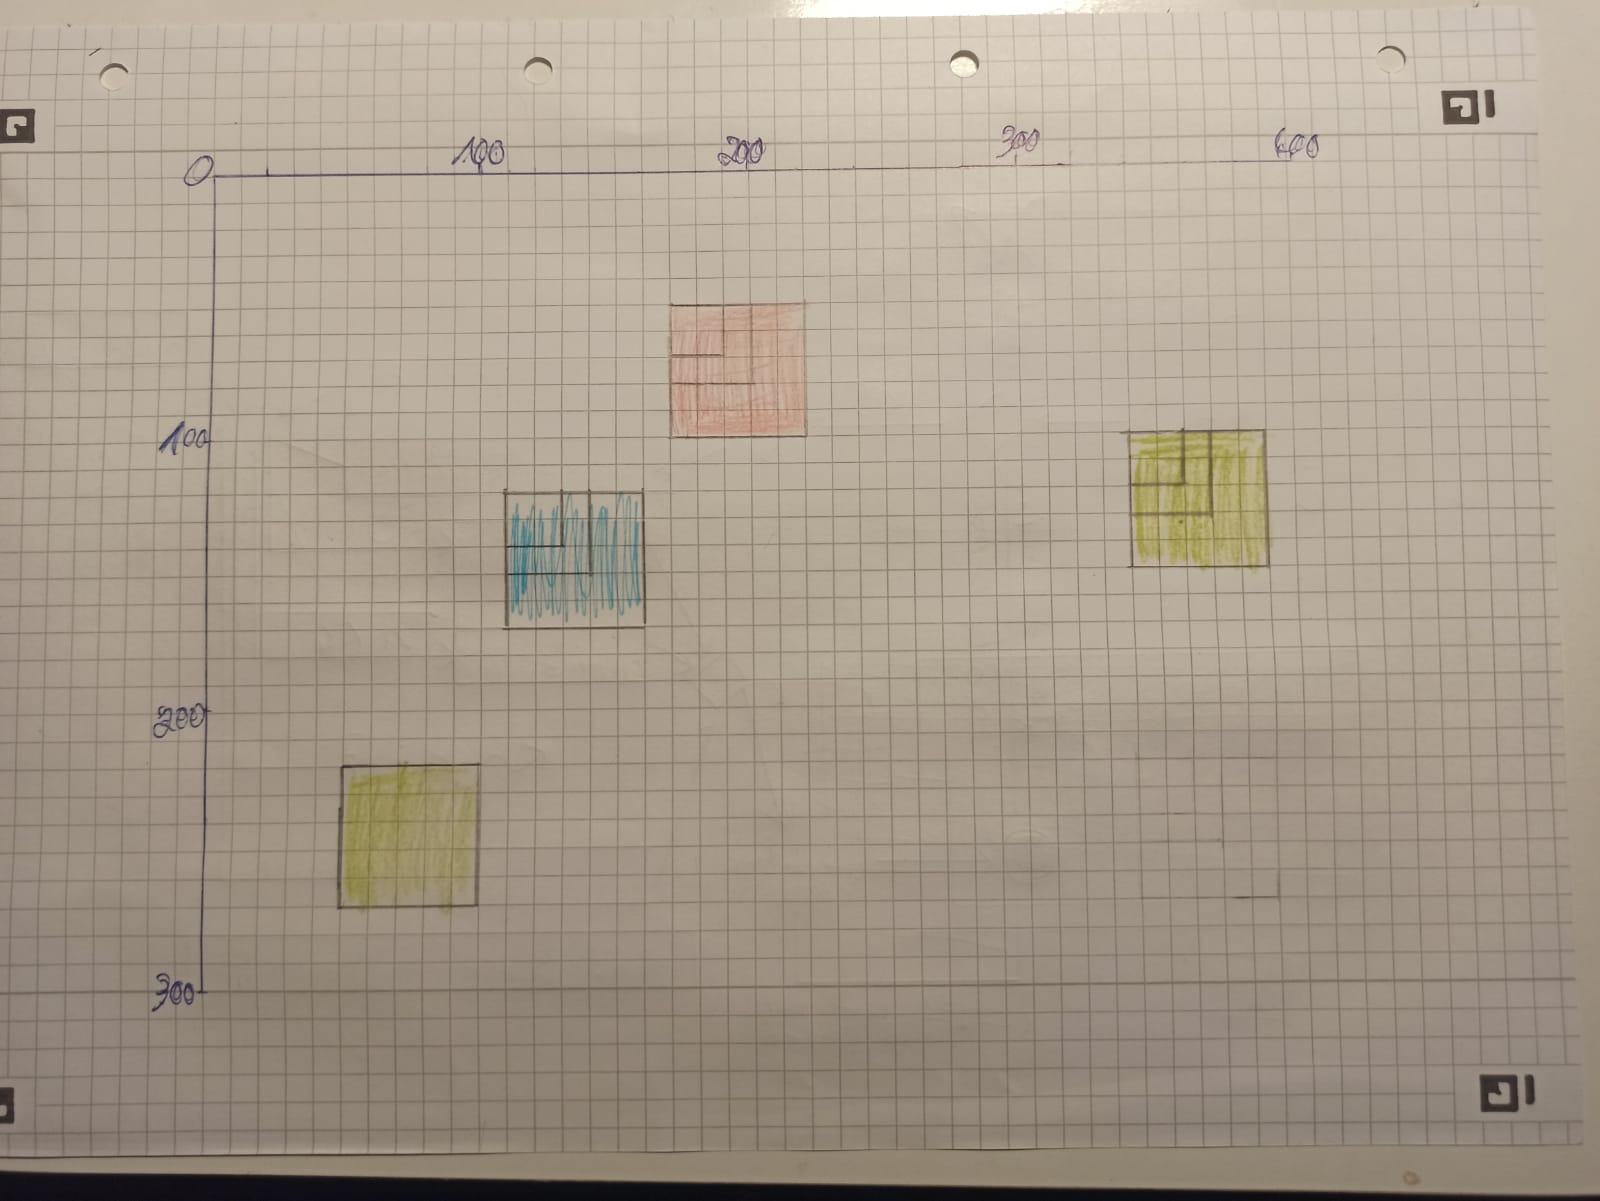 0 100 200 300 400
100
200
300